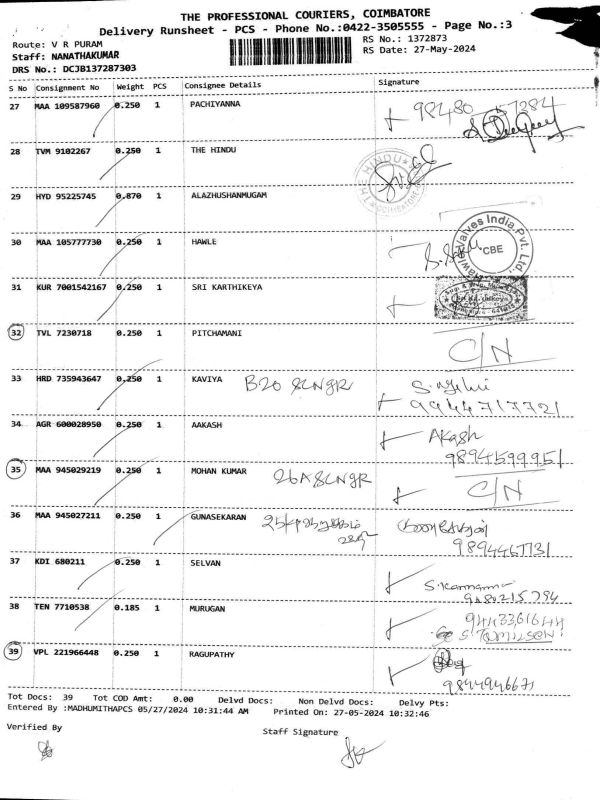 THE PROFESSIONAL COURIERS, COIMBATORE
Delivery Runsheet - PCS - Phone No.:0422-3505555 - Page No.:3
Route: V R PURAM
RS No.: 1372873
Staff: NANATHAKUMAR
RS Date: 27-May-2024
DRS No.: DCJB137287303
S No Consignment No Weight PCS Consignee Details Signature
27 MAA 109587960 0.250 1 PACHIYANNA 98480 57284
28 TVM 9102267 0.250 1 THE HINDU
HINDU
COIMBATORE
29 HYD 95225745 0.870 1 ALAZHUSHANMUGAM
30 MAA 105777730 0.250 1 HAWLE
Hawle Valves India Pvt. Ltd.
CBE
31 KUR 7001542167 0.250 1 SRI KARTHIKEYA
32 TVL 7230718 0.250 1 PITCHAMANI C/N
33 HRD 735943647 0.250 1 KAVIYA B20 SLNGR
9944717721
34 AGR 600028950 0.250 1 AAKASH Akash
9894599951
35 MAA 945029219 0.250 1 MOHAN KUMAR 26A SLNGR C/N
36 MAA 945027211 0.250 1 GUNASEKARAN
9894467131
37 KDI 680211 0.250 1 SELVAN S. Kannamma
38 TEN 7710538 0.185 1 MURUGAN 9443361644
S. TAMILSELVI
39 VPL 221966448 0.250 1 RAGUPATHY
9844946671
Tot Docs: 39 Tot COD Amt: 0.00 Delvd Docs: Non Delvd Docs: Delvy Pts:
Entered By :MADHUMITHAPCS 05/27/2024 10:31:44 AM Printed On: 27-05-2024 10:32:46
Verified By
Staff Signature